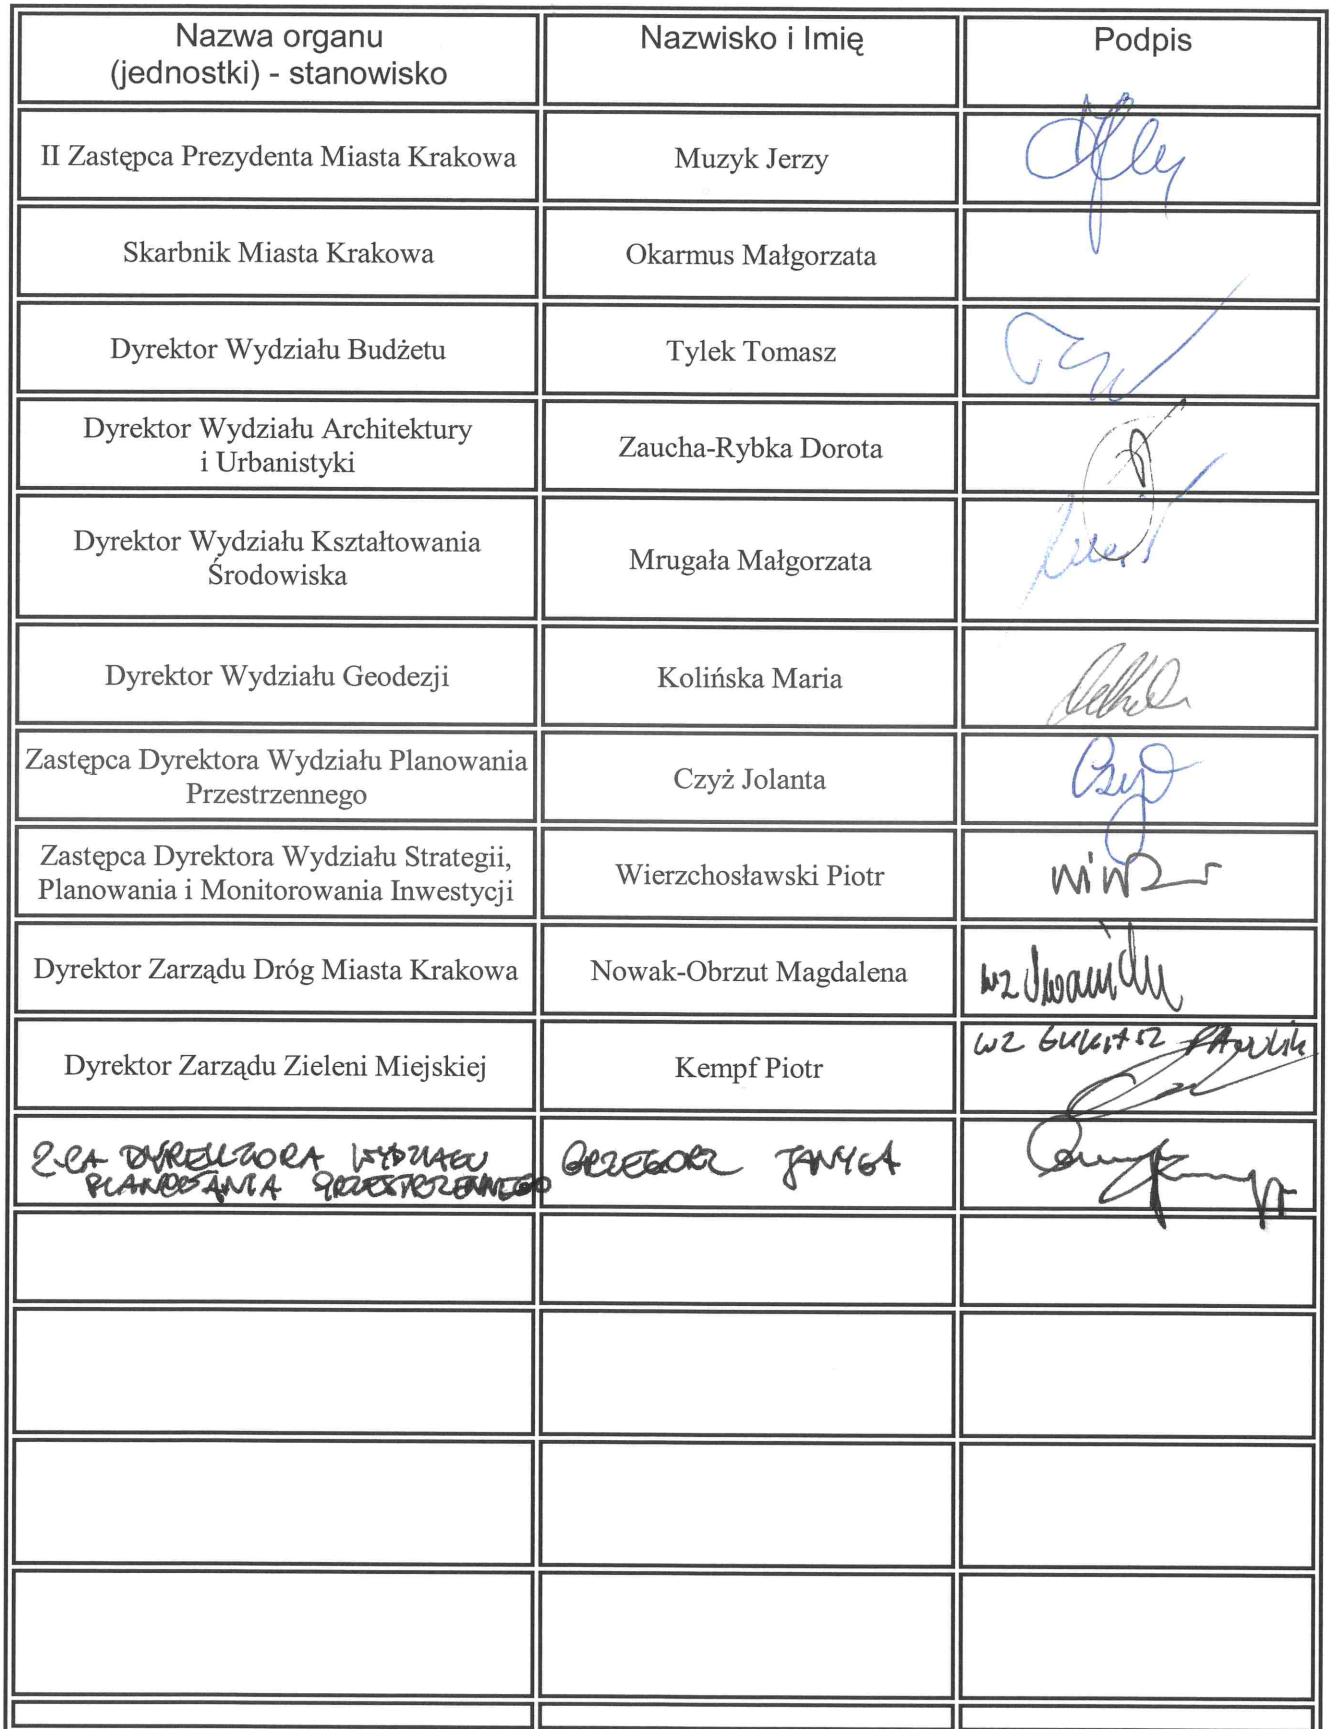 Nazwa organu
(jednostki) - stanowisko
Nazwisko i Imię
Podpis
II Zastępca Prezydenta Miasta Krakowa
Muzyk Jerzy
Skarbnik Miasta Krakowa
Okarmus Małgorzata
Dyrektor Wydziału Budżetu
Tylek Tomasz
Dyrektor Wydziału Architektury
i Urbanistyki
Zaucha-Rybka Dorota
Dyrektor Wydziału Kształtowania
Środowiska
Mrugała Małgorzata
Dyrektor Wydziału Geodezji
Kolińska Maria
Zastępca Dyrektora Wydziału Planowania
Przestrzennego
Czyż Jolanta
Zastępca Dyrektora Wydziału Strategii,
Planowania i Monitorowania Inwestycji
Wierzchosławski Piotr
Dyrektor Zarządu Dróg Miasta Krakowa
Nowak-Obrzut Magdalena
wz
Dyrektor Zarządu Zieleni Miejskiej
Kempf Piotr
wz ŁUKASZ PAWLIK
Z-CA DYREKTORA WYDZIAŁU
PLANOWANIA PRZESTRZENNEGO
GRZEGORZ JANYGA